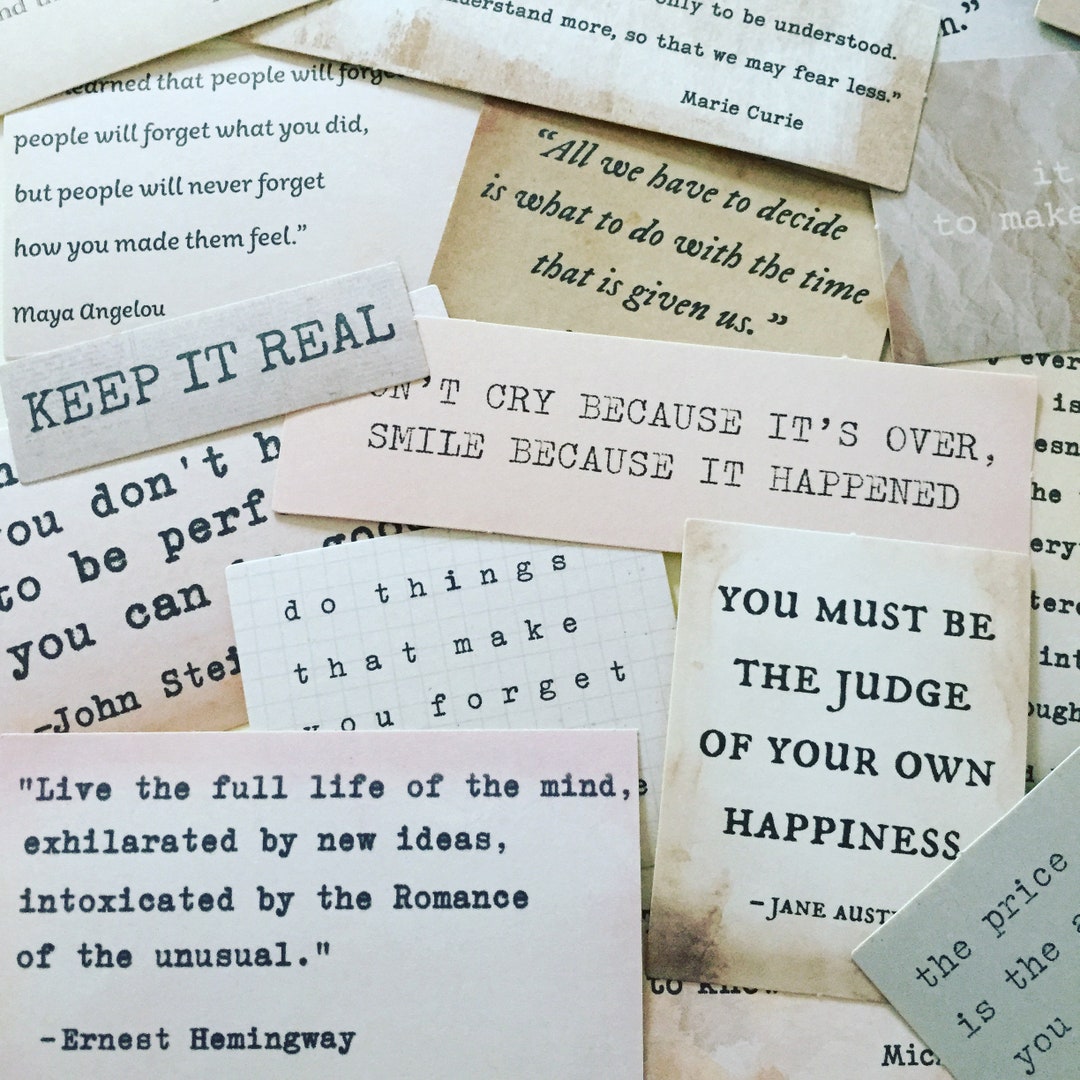 only to be understood.
understand more, so that we may fear less.”
Marie Curie
learned that people will forget
people will forget what you did,
but people will never forget
how you made them feel.”
Maya Angelou
“All we have to decide
is what to do with the time
that is given us.”
it
to make
KEEP IT REAL
N'T CRY BECAUSE IT'S OVER,
SMILE BECAUSE IT HAPPENED
you don't b
to be perf
you can
good
—John Stei
do things
that make
you forget
YOU MUST BE
THE JUDGE
OF YOUR OWN
HAPPINESS
–JANE AUST
"Live the full life of the mind,
exhilarated by new ideas,
intoxicated by the Romance
of the unusual."
–Ernest Hemingway
the price
is the a
you
ever
is
esn
he
ery
tere
int
ough
to know
Mic